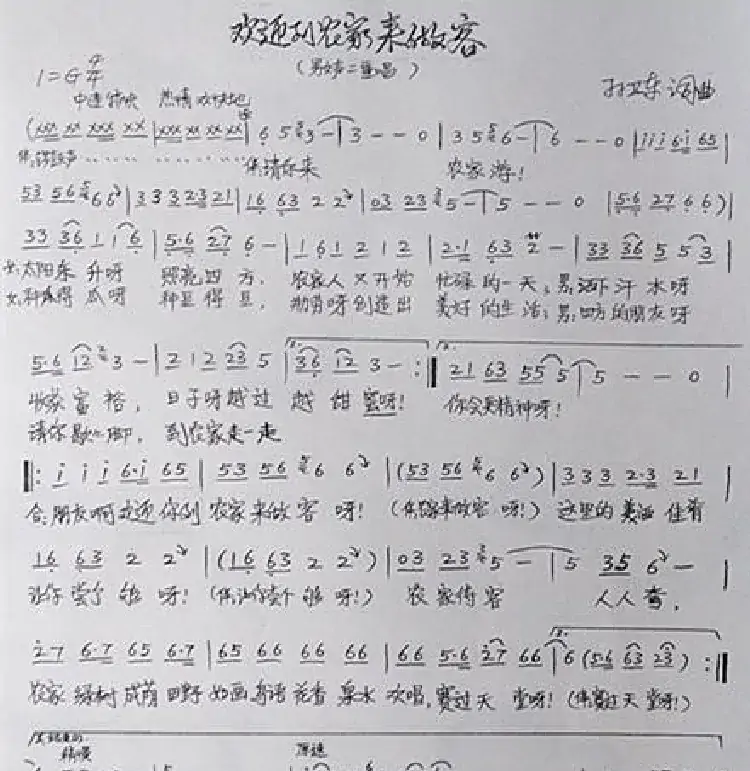 欢迎到农家来做客
(男女声二重唱)
1=G 4/4
中速稍快 热情欢快地
孙卫东 词曲
(xxx xx xxx xx | xxx xx xx xx | 6 5 3 — | 3 — — 0 | 3 5 6 — | 6 — — 0 | i i i 6·i 65 |
伴:锣鼓声 伴:请你来 农家游!
53 56 6 6 | 3 3 3 23 21 | 16 63 2 2 | 03 23 5 — | 5 — — 0 | 5·6 27 6 6) |
33 36 1 1 6 | 5·6 27 6 — | 1 61 2 1 2 | 2·1 63 2 — | 33 36 5 5 3 |
女:太阳东升呀 照亮四方, 农家人又开始 忙碌的一天;男:洒下汗水呀
女:种瓜得瓜呀 种豆得豆, 勤劳呀创造出 美好的生活;男:四方的朋友呀
5·6 12 3 — | 2 1 2 23 5 | 36 12 3 — :‖ 21 63 55 5 | 5 — — 0 |
农家富裕, 日子呀越过 越甜蜜呀! 你会更精神呀!
请你歇歇脚, 到农家走一走
‖: i i i 6·i 65 | 53 56 6 6 | (53 56 6 6) | 3 3 3 2·3 21 |
合:朋友啊欢迎你到 农家来做客呀! (伴:农家来做客呀!) 这里的美酒佳肴
16 63 2 2 | (16 63 2 2) | 03 23 5 — | 5 35 6 — |
让你尝个够呀! (伴:让你尝个够呀!) 农家待客 人人夸,
27 6·7 65 6·7 | 65 66 66 66 | 66 5·6 27 66 | 6 (5·6 63 23) :‖
农家绿树成荫田野如画鸟语花香泉水欢唱,赛过天堂呀! (伴:赛过天堂呀!)
结束句
稍慢 原速